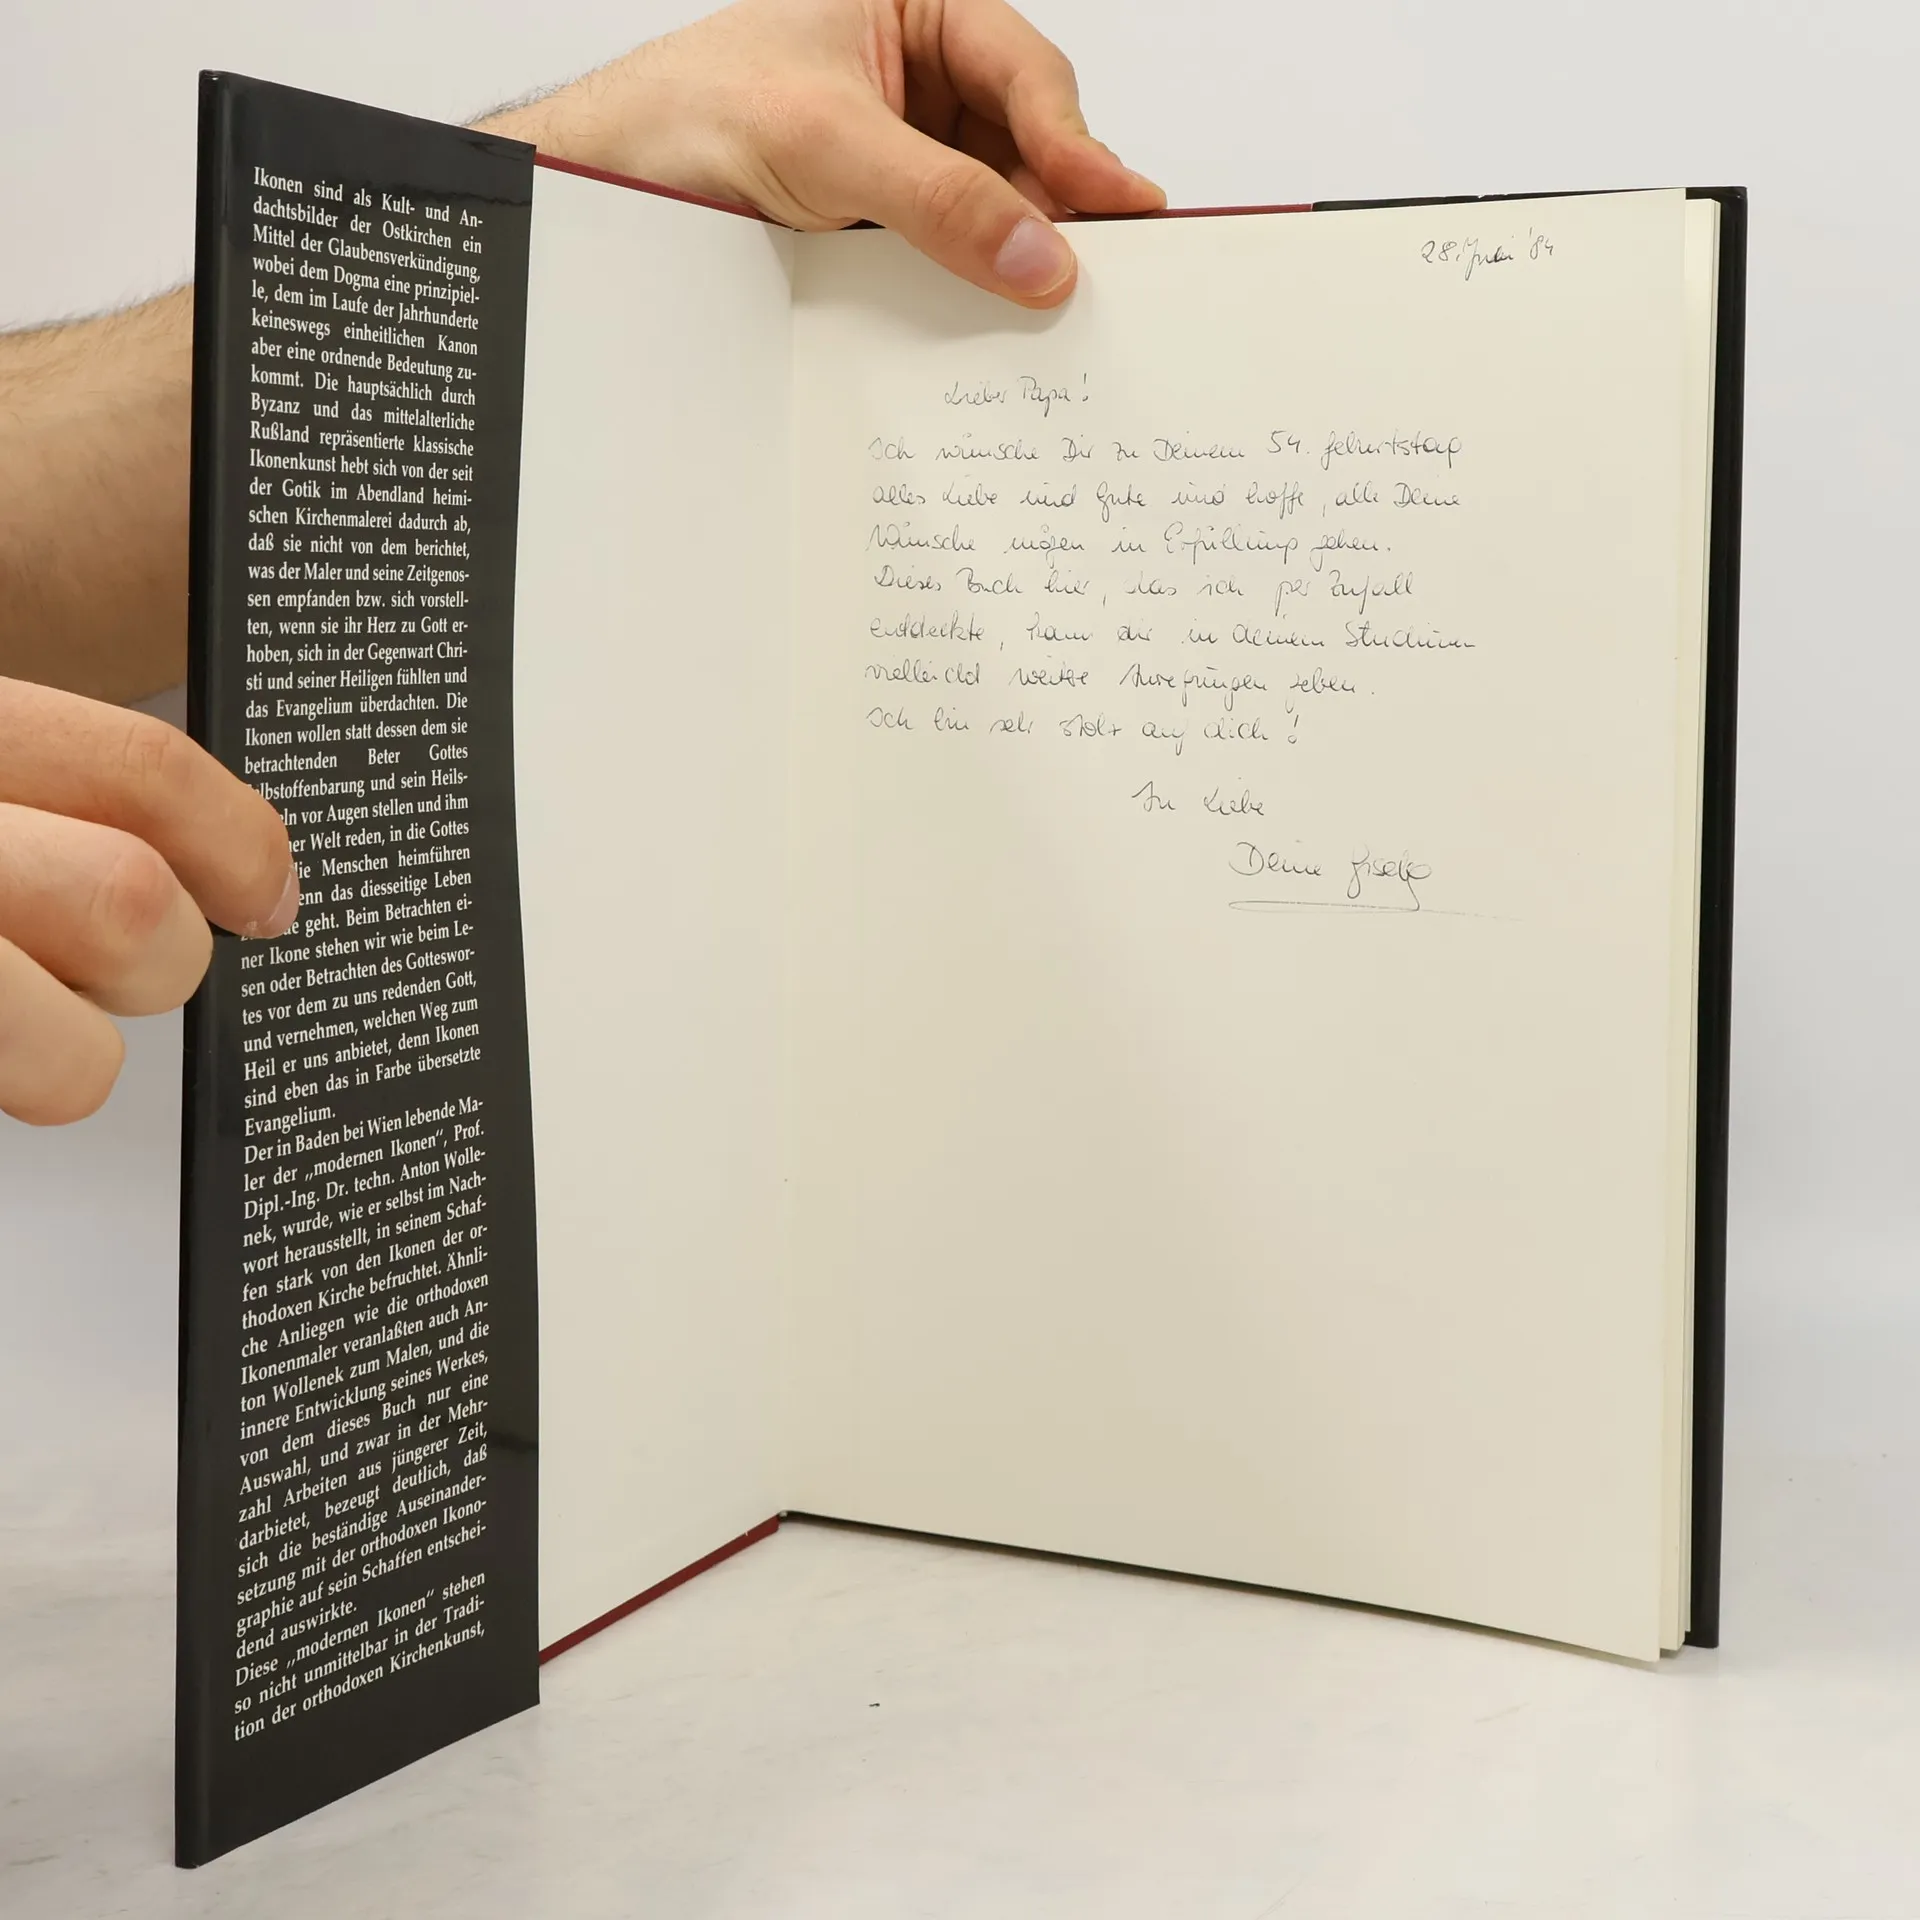 Ikonen sind als Kult- und An-
dachtsbilder der Ostkirchen ein
Mittel der Glaubensverkündigung,
wobei dem Dogma eine prinzipiel-
le, dem im Laufe der Jahrhunderte
keineswegs einheitlichen Kanon
aber eine ordnende Bedeutung zu-
kommt. Die hauptsächlich durch
Byzanz und das mittelalterliche
Rußland repräsentierte klassische
Ikonenkunst hebt sich von der seit
der Gotik im Abendland heimi-
schen Kirchenmalerei dadurch ab,
daß sie nicht von dem berichtet,
was der Maler und seine Zeitgenos-
sen empfanden bzw. sich vorstell-
ten, wenn sie ihr Herz zu Gott er-
hoben, sich in der Gegenwart Chri-
sti und seiner Heiligen fühlten und
das Evangelium überdachten. Die
Ikonen wollen statt dessen dem sie
betrachtenden Beter Gottes
lbstoffenbarung und sein Heils-
eln vor Augen stellen und ihm
ner Welt reden, in die Gottes
die Menschen heimführen
enn das diesseitige Leben
geht. Beim Betrachten ei-
ner Ikone stehen wir wie beim Le-
sen oder Betrachten des Gotteswor-
tes vor dem zu uns redenden Gott,
und vernehmen, welchen Weg zum
Heil er uns anbietet, denn Ikonen
sind eben das in Farbe übersetzte
Evangelium.
Der in Baden bei Wien lebende Ma-
ler der „modernen Ikonen“, Prof.
Dipl.-Ing. Dr. techn. Anton Wolle-
nek, wurde, wie er selbst im Nach-
wort herausstellt, in seinem Schaf-
fen stark von den Ikonen der or-
thodoxen Kirche befruchtet. Ähnli-
che Anliegen wie die orthodoxen
Ikonenmaler veranlaßten auch An-
ton Wollenek zum Malen, und die
innere Entwicklung seines Werkes,
von dem dieses Buch nur eine
Auswahl, und zwar in der Mehr-
zahl Arbeiten aus jüngerer Zeit,
darbietet, bezeugt deutlich, daß
sich die beständige Auseinander-
setzung mit der orthodoxen Ikono-
graphie auf sein Schaffen entschei-
dend auswirkte.
Diese „modernen Ikonen“ stehen
so nicht unmittelbar in der Tradi-
tion der orthodoxen Kirchenkunst,
28. '84
Lieber Papa!
Ich wünsche Dir zu Deinem 54. Geburtstag
alles Liebe und Gute und hoffe, alle Deine
Wünsche mögen in Erfüllung gehen.
Dieses Buch hier, das ich per Zufall
entdeckte, kann dir in deinem Studium
vielleicht weitere Anregungen geben.
Ich bin sehr stolz auf dich!
In Liebe
Deine Gisela